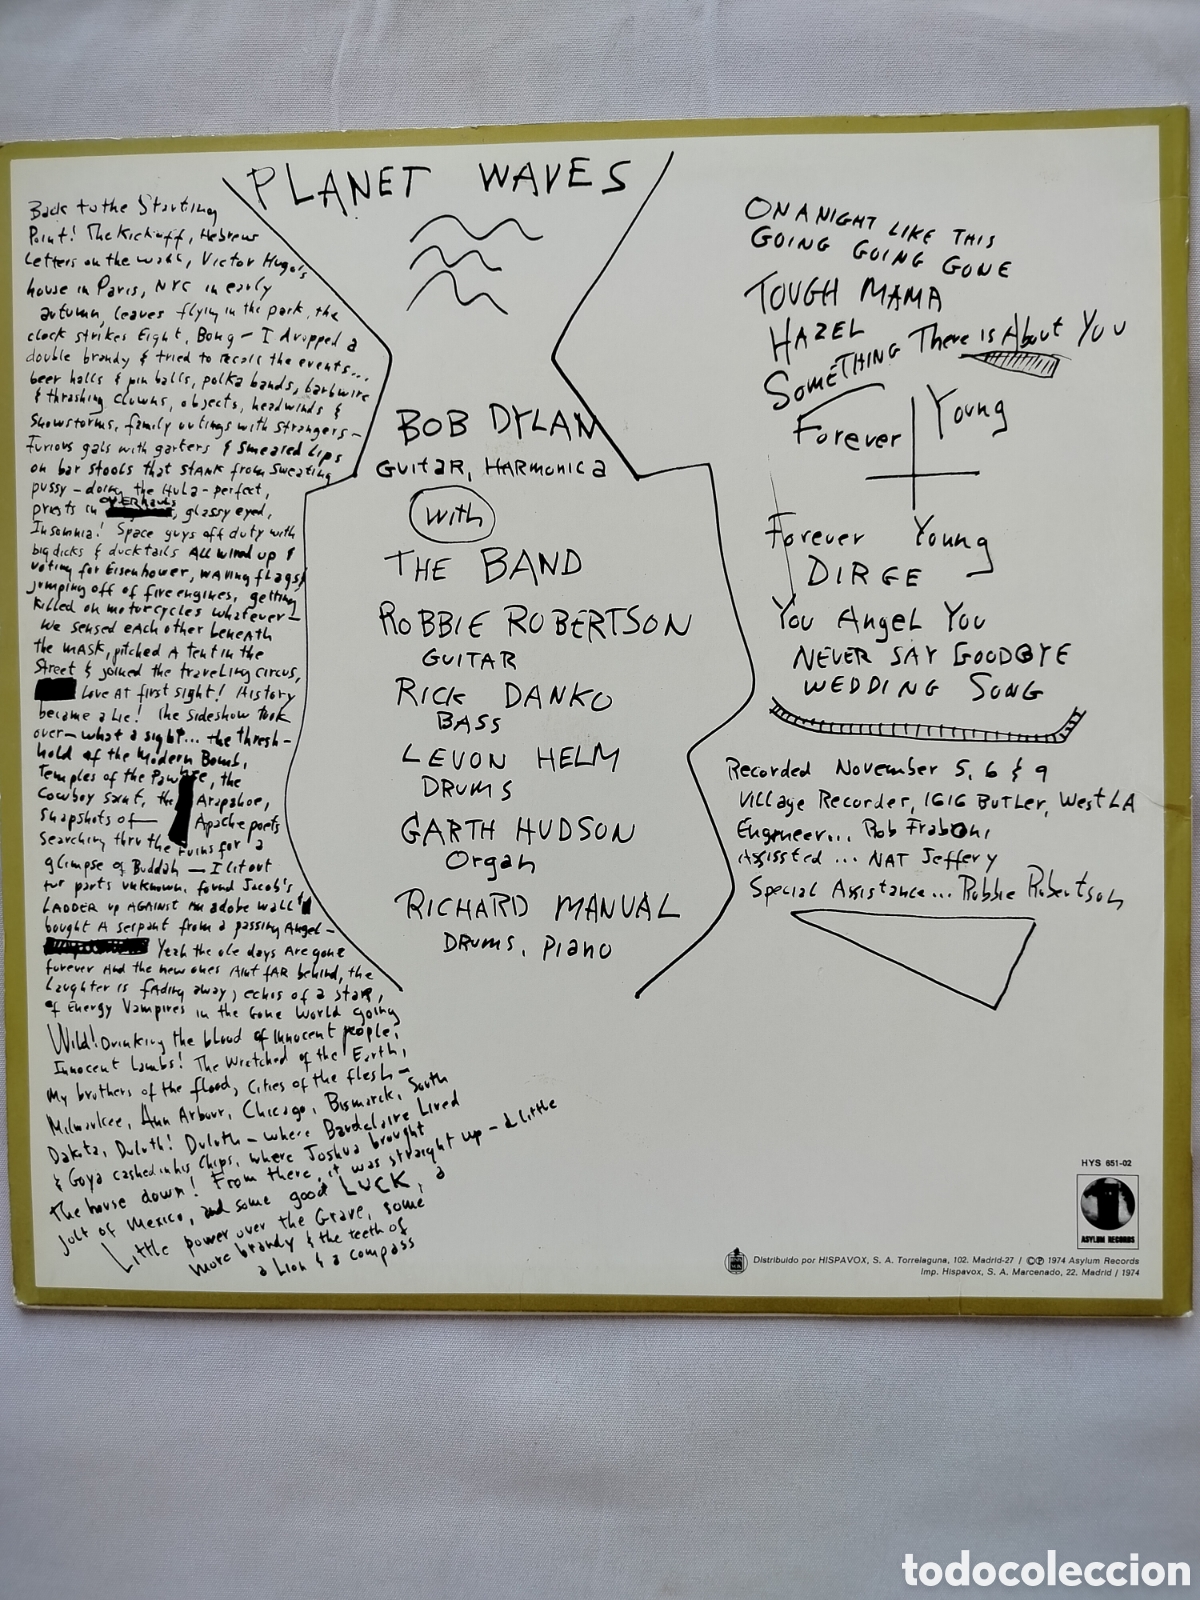 PLANET WAVES
Back to the Starting
Point! The Kickoff, Hebrew
Letters on the wall, Victor Hugo's
house in Paris, NYC in early
autumn, leaves flying in the park, the
clock strikes Eight, Bong - I dropped a
double brandy & tried to recall the events...
beer halls & pin balls, polka bands, barbwire
& thrashing clowns, objects, headwinds &
Snowstorms, family outings with strangers -
Furious gals with garters & smeared Lips
on bar stools that STANK from sweating
pussy - doing the Hula - perfect,
priests in OVERhauls, glassy eyed,
Insomnia! Space guys off duty with
big dicks & ducktails All wired up &
voting for Eisenhower, waving flags &
jumping off of fire engines, getting
killed on motorcycles whatever -
We sensed each other beneath
the MASK, pitched A tent in the
Street & joined the traveling circus,
Love AT first sight! History
became a Lie! The sideshow took
over - what a sight... the thresh-
hold of the Modern Bomb,
Temples of the Pawnee, the
Cowboy saint, the Arapahoe,
snapshots of - Apache poets
searching thru the ruins for a
glimpse of Buddah - I lit out
for parts unknown, found Jacob's
LADDER up AGAINST an adobe wall &
bought A serpant from a passing Angel -
Yeah the ole days Are gone
forever And the new ones Aint fAR behind, the
Laughter is fAding away, echos of a star,
of Energy Vampires in the Gone World going
Wild! Drinking the blood of innocent people,
Innocent Lambs! The Wretched of the Earth,
My brothers of the flood, Cities of the flesh -
Milwaukee, Ann Arbour, Chicago, Bismarck, South
Dakota, Duluth! Duluth - where Baudelaire Lived
& Goya cashed in his Chips, where Joshua brought
The house down! From there, it was straight up - a little
jolt of Mexico, and some good LUCK, a
Little power over the Grave, some
more brandy & the teeth of
a Lion & a compass
BOB DYLAN
GUITAR, HARMONICA
With
THE BAND
ROBBIE ROBERTSON
GUITAR
RICK DANKO
BASS
LEVON HELM
DRUMS
GARTH HUDSON
Organ
RICHARD MANUAL
DRUMS, Piano
ON A NIGHT LIKE THIS
GOING GOING GONE
TOUGH MAMA
HAZEL
SOMETHING There is About You
Forever Young
Forever Young
DIRGE
You Angel You
NEVER SAY GOODBYE
WEDDING SONG
Recorded November 5, 6 & 9
Village Recorder, 1616 BUTLER, West LA
Engineer... Rob Fraboni
Assissted ... NAT Jeffery
Special Assistance... Robbie Robertson
HYS 651-02
ASYLUM RECORDS
Distribuido por HISPAVOX, S. A. Torrelaguna, 102. Madrid-27 / ©℗ 1974 Asylum Records
Imp. Hispavox, S. A. Marcenado, 22. Madrid / 1974
todocoleccion